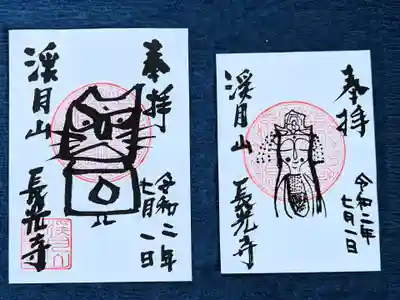 奉拝
令和二年
七月一日
渓月山
長光寺
奉拝
令和二年
七月一日
渓月山
長光寺